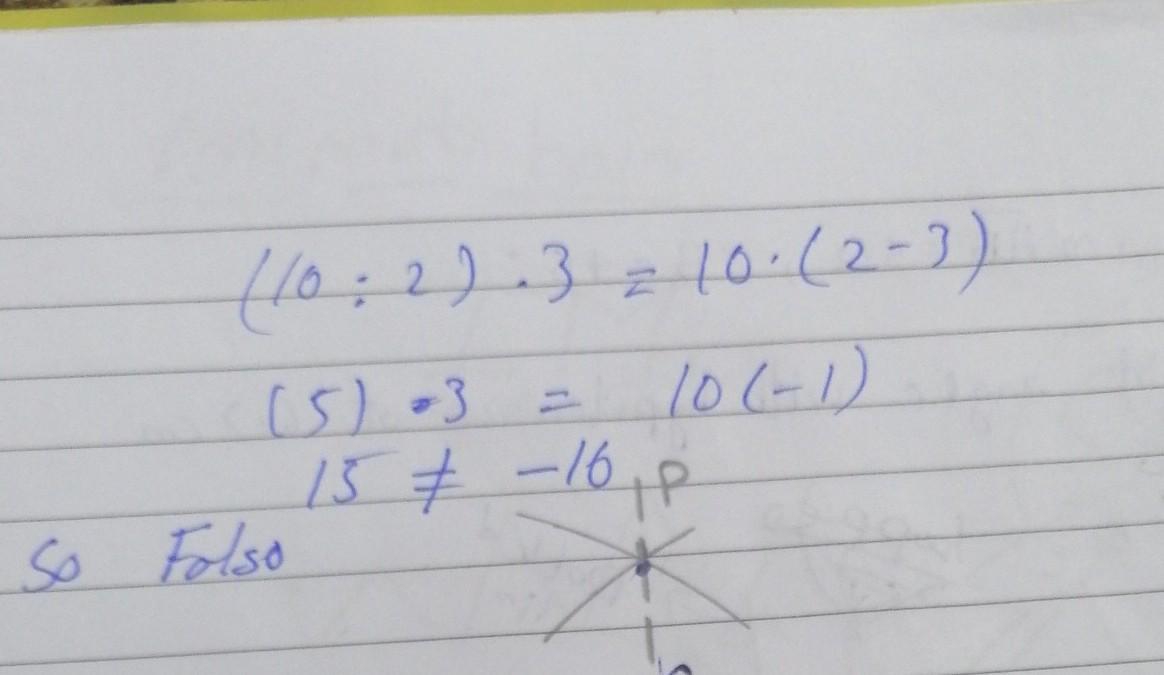 (10 : 2) · 3 = 10 · (2 - 3)
(5) · 3 = 10 (-1)
15 ≠ -10
P
So Falso